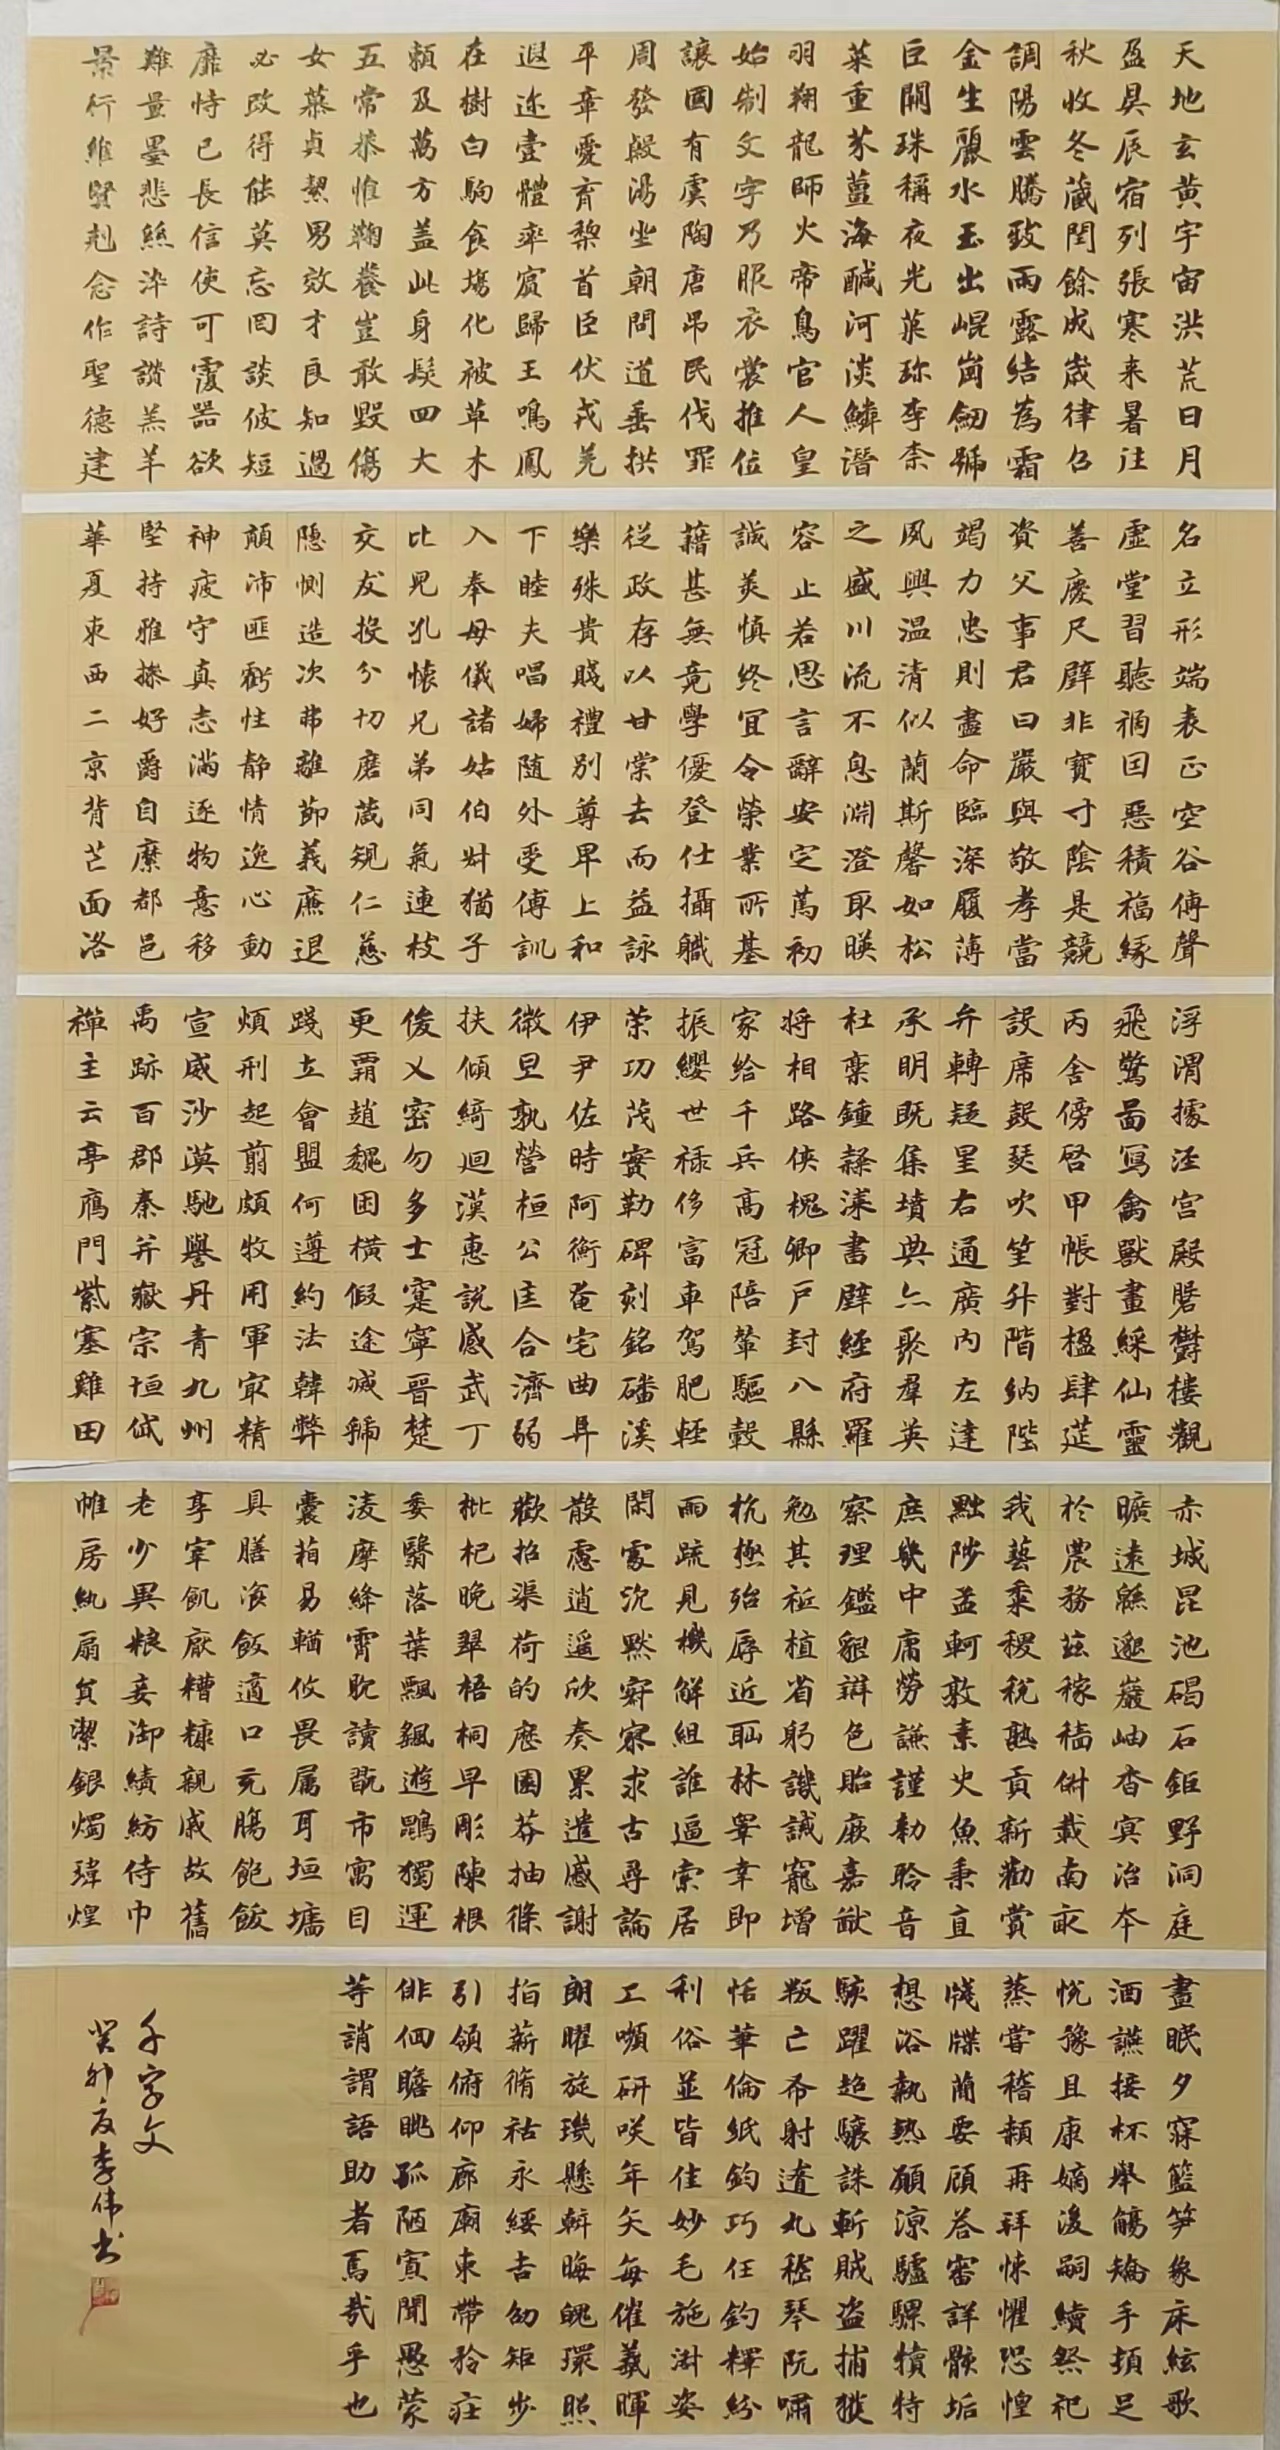 天地玄黄宇宙洪荒日月
盈昃辰宿列張寒来暑往
秋收冬藏閏餘成歲律召
調陽雲騰致雨露結為霜
金生麗水玉出崐崗劒號
巨闕珠稱夜光菓珎李柰
菜重芥薑海醎河淡鱗潛
羽翔龍師火帝鳥官人皇
始制文字乃服衣裳推位
讓國有虞陶唐吊民伐罪
周發殷湯坐朝問道垂拱
平章愛育黎首臣伏戎羌
遐迩壹體率賓歸王鳴鳳
在樹白駒食場化被草木
頼及萬方蓋此身髮四大
五常恭惟鞠養豈敢毀傷
女慕貞絜男效才良知過
必改得能莫忘罔談彼短
靡恃己長信使可覆器欲
難量墨悲絲染詩讚羔羊
景行維賢剋念作聖德建
名立形端表正空谷傳聲
虛堂習聽禍因惡積福緣
善慶尺璧非寶寸陰是競
資父事君曰嚴與敬孝當
竭力忠則盡命臨深履薄
夙興温清似蘭斯馨如松
之盛川流不息淵澄取暎
容止若思言辭安定篤初
誠美慎終宜令榮業所基
藉甚無竟學優登仕攝職
從政存以甘棠去而益詠
樂殊貴賤禮別尊卑上和
下睦夫唱婦随外受傅訓
入奉母儀諸姑伯叔猶子
比兒孔懷兄弟同氣連枝
交友投分切磨箴規仁慈
隱惻造次弗離節義廉退
顛沛匪虧性静情逸心動
神疲守真志滿逐物意移
堅持雅操好爵自縻都邑
華夏東西二京背芒面洛
浮渭據涇宫殿磐鬱樓觀
飛驚啚寫禽獸畫綵仙靈
丙舍傍啓甲帳對楹肆筵
設席鼓瑟吹笙升階納陛
弁轉疑星右通廣内左達
承明既集墳典亦聚羣英
杜稾鍾隸漆書壁經府羅
将相路俠槐卿户封八縣
家給千兵高冠陪輦驅轂
振纓世禄侈富車駕肥輕
策功茂實勒碑刻銘磻溪
伊尹佐時阿衡奄宅曲阜
微旦孰營桓公匡合濟弱
扶傾綺迴漢惠說感武丁
俊乂密勿多士寔寧晋楚
更霸趙魏困横假途滅虢
踐立會盟何遵約法韓弊
煩刑起翦頗牧用軍㝡精
宣威沙漠馳譽丹青九州
禹跡百郡秦并嶽宗恒岱
禅主云亭鴈門紫塞雞田
赤城昆池碣石鉅野洞庭
曠遠緜邈巖岫杳冥治本
於農務兹稼穡俶載南畝
我藝黍稷税熟貢新勸賞
黜陟孟軻敦素史魚秉直
庶幾中庸勞謙謹勑聆音
察理鑑貌辯色貽厥嘉猷
勉其祗植省躬譏誡寵增
抗極殆辱近耻林臯幸即
兩疏見機解組誰逼索居
閑處沉默寂寥求古尋論
散慮逍遥欣奏累遣慼謝
歡招渠荷的歷園莽抽條
枇杷晚翠梧桐早彫陳根
委翳落葉飄颻遊鵾獨運
凌摩絳霄耽讀翫市寓目
囊箱易輶攸畏属耳垣墻
具膳湌飯適口充腸飽飯
享宰飢厭糟糠親戚故舊
老少異粮妾御績紡侍巾
帷房紈扇貟潔銀燭瑋煌
晝眠夕寐籃笋象床絃歌
酒讌接杯舉觴矯手頓足
悅豫且康嫡後嗣續祭祀
蒸嘗稽顙再拜悚懼恐惶
牋牒簡要顧答審詳骸垢
想浴執熱願涼驢騾犢特
駭躍超驤誅斬賊盗捕獲
叛亡布射遼丸嵇琴阮嘯
恬筆倫紙鈞巧任釣釋紛
利俗並皆佳妙毛施淑姿
工嚬研咲年矢每催羲暉
朗曜旋璣懸斡晦魄環照
指薪脩祜永綏吉劭矩步
引領俯仰廊廟束帶矜莊
俳佪瞻眺孤陋寡聞愚蒙
等誚謂語助者焉哉乎也
千字文
癸卯夏李伟书